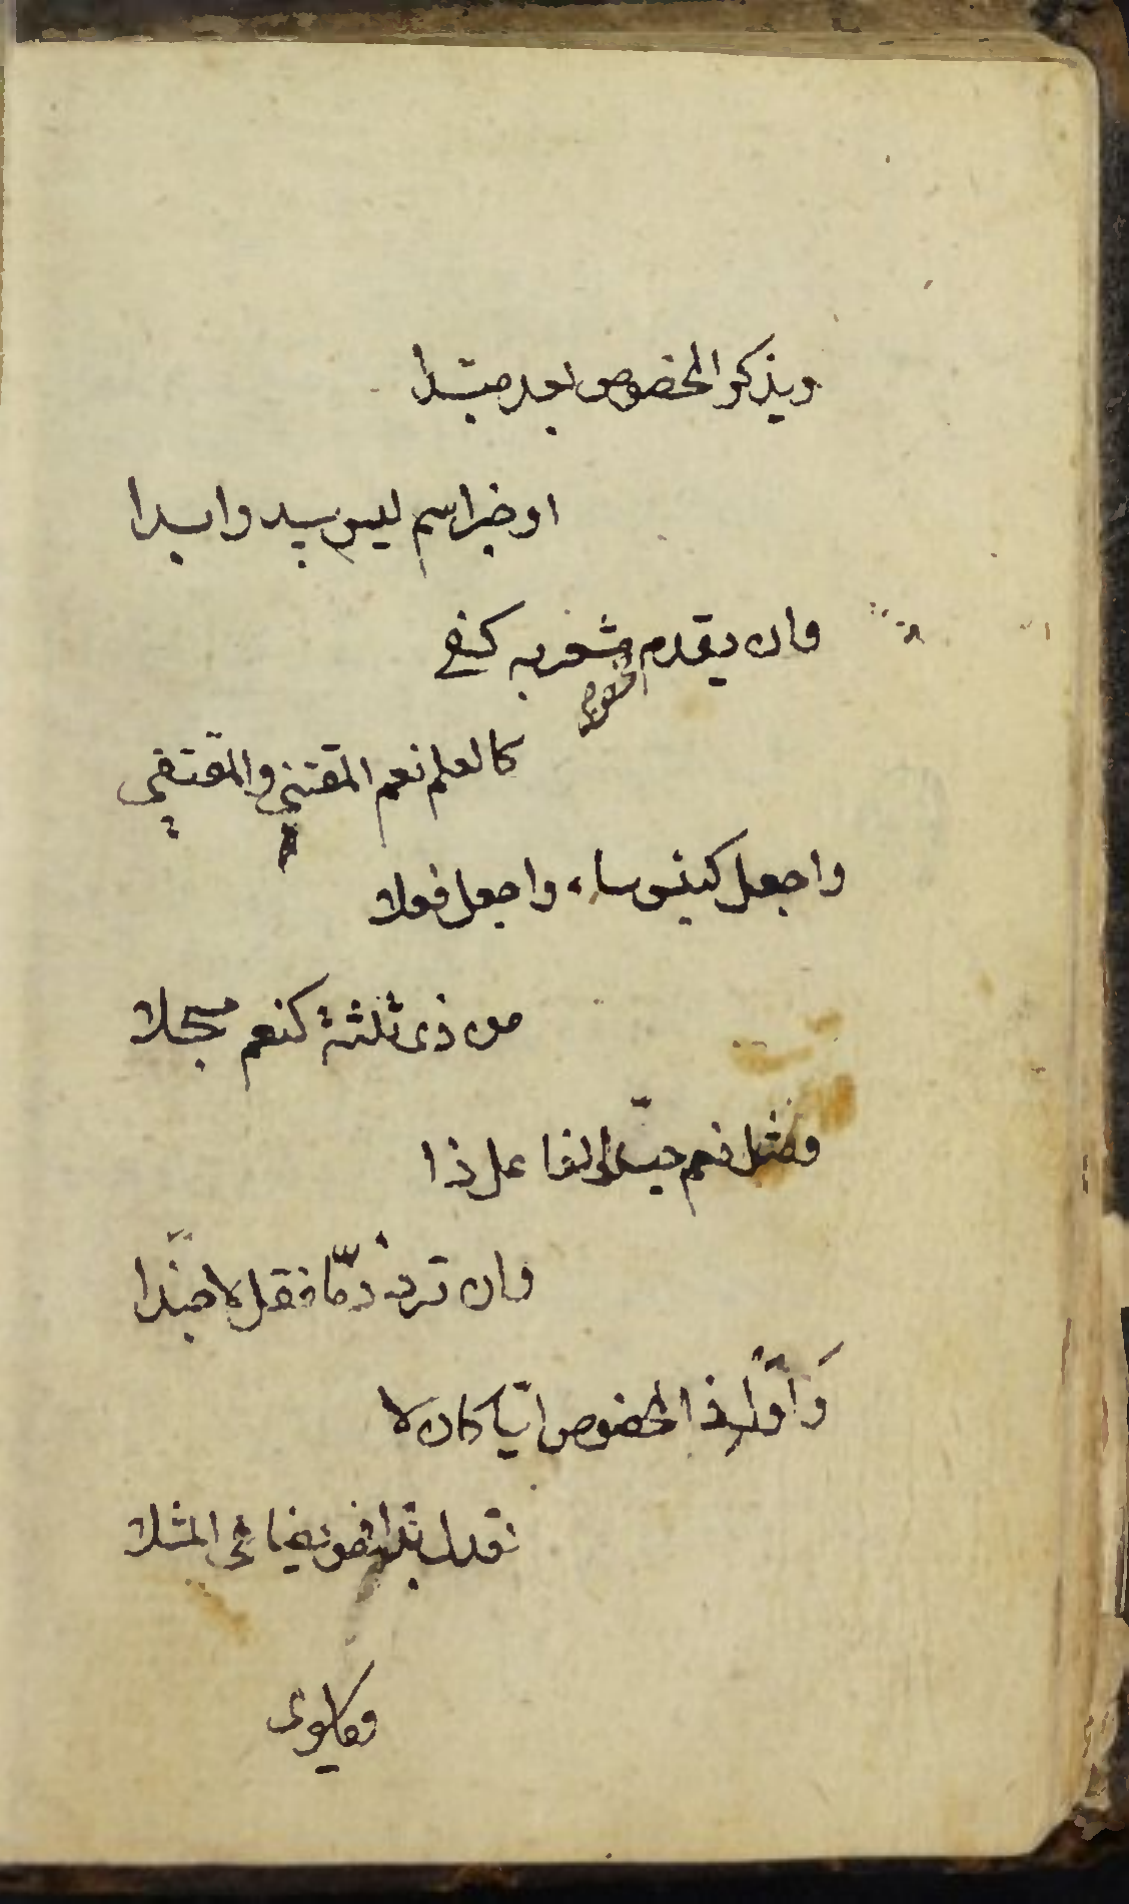 ويذكر المخصوص بعد مبتدا
او خبر اسم ليس يبدو ابدا
وان يقدم مشعر به كفى
المخصوص
كالعلم نعم المقتنى والمقتفى
واجعل كبئس ساء واجعل فعلا
من ذى ثلثة كنعم مسجلا
ومثل نعم حبّذا الفاعل ذا
وان ترد ذمّا فقل لا حبّذا
وَاَوّل ذا المخصوص ايّا كان لا
تعدل بذا فهو يضاهى المثلا
وماسوى